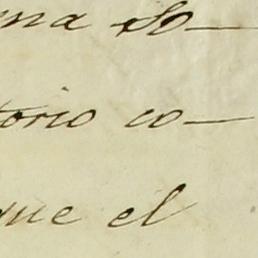 ma so—
torio co—
que el